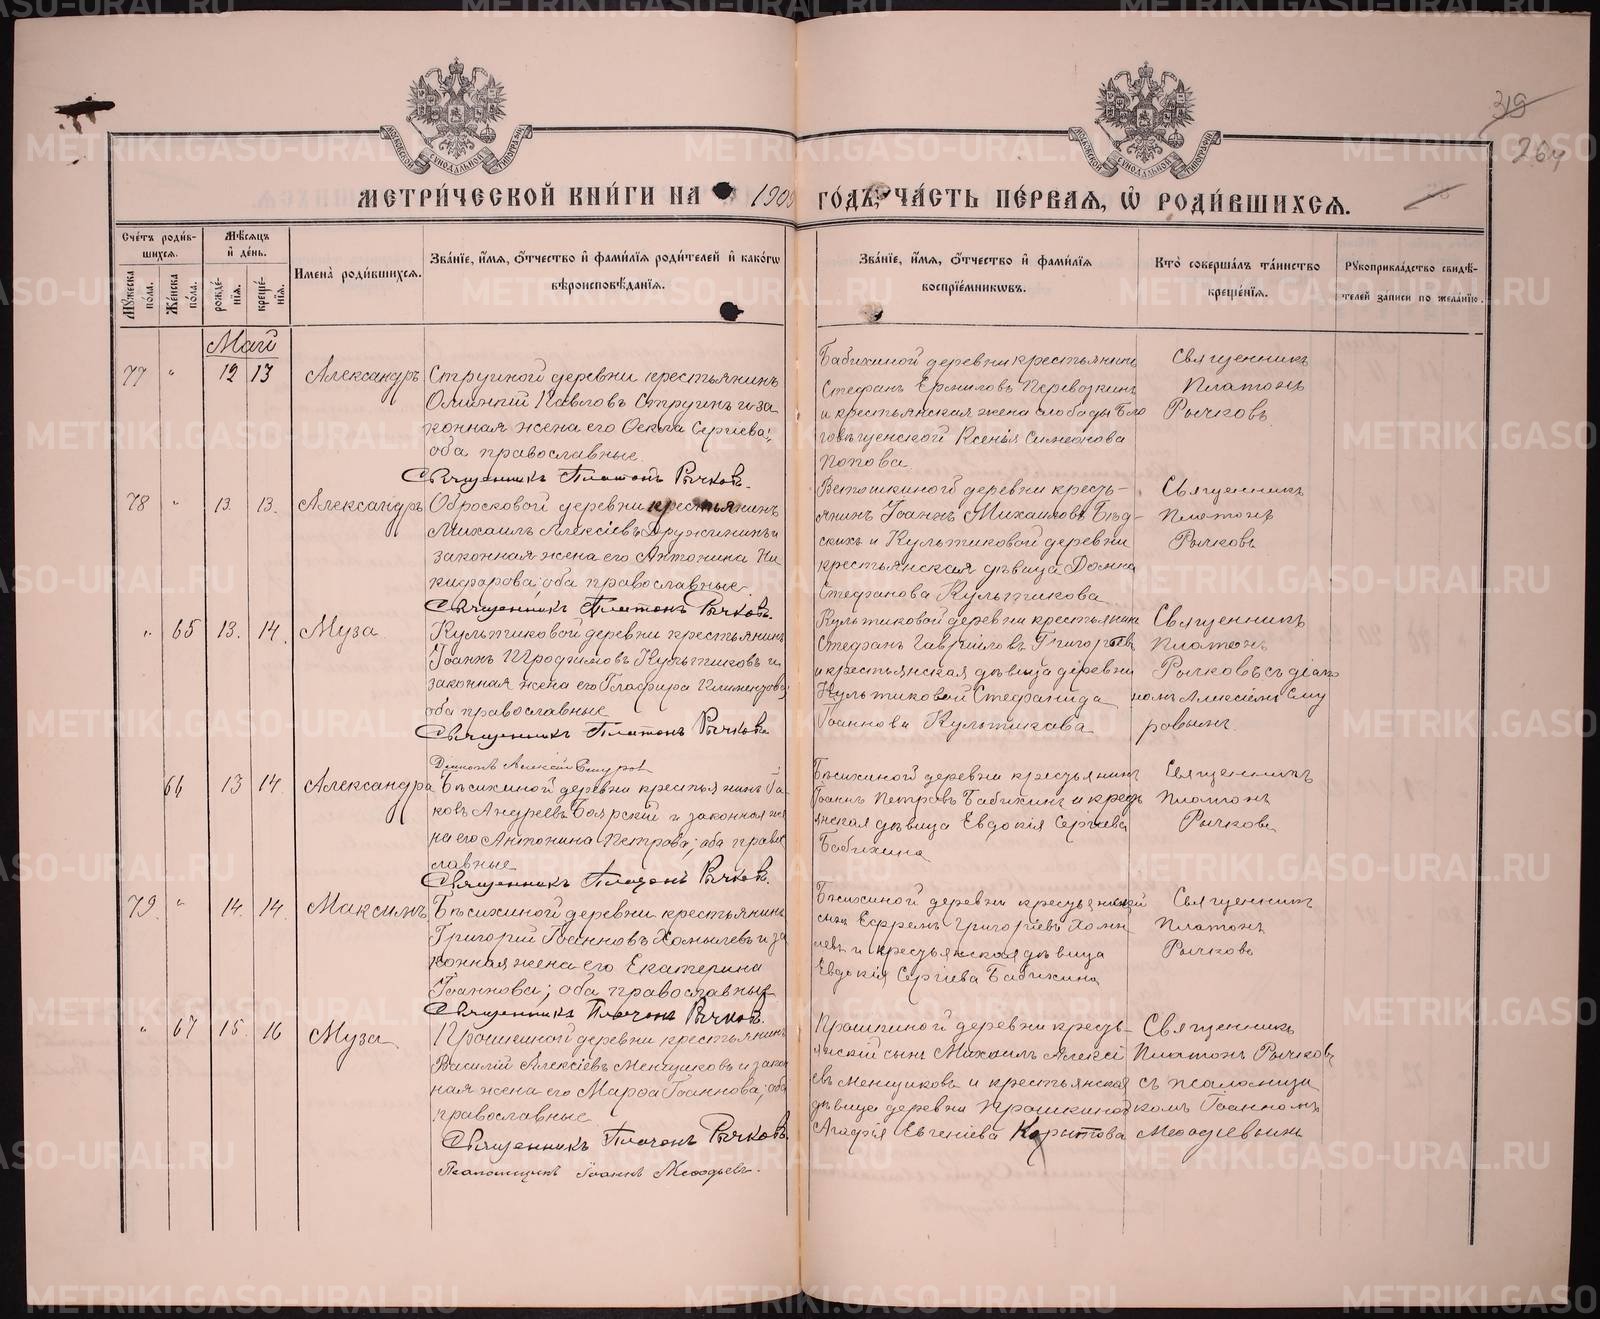 319
264
МОСКОВСКОЙ СѴНОДАЛЬНОЙ ТИПОГРАФІИ
МОСКОВСКОЙ СѴНОДАЛЬНОЙ ТИПОГРАФІИ
МЕТРИ́ЧЕСКОЙ КНИ́ГИ НА 1900 ГОДЪ, ЧА́СТЬ ПЕ́РВАЯ, Ѽ РОДИ́ВШИХСЯ.
Сче́тъ роди́вшихся.
Му́жеска по́ла.
Же́нска по́ла.
Мѣ́сяцъ и де́нь.
рожде́нія.
креще́нія.
Имена̀ роди́вшихся.
Зва́ніе, и́мя, о́тчество и фами́лія роди́телей и како́гѡ вѣроисповѣ́данія.
Зва́ніе, и́мя, о́тчество и фами́лія воспріе́мниковъ.
Кто̀ соверша́лъ та́инство креще́нія.
Рукоприкла́дство свидѣ́телей за́писи по жела́нію.
Май
77 " 12 13 Александръ
Струиной деревни крестьянинъ
Павловъ Струинъ и за
конная жена его Ѳекла Сергіева;
оба православные.
Священникъ Платонъ Рычковъ.
Бабихиной деревни крестьянинъ
Стефанъ Ермиловъ Перевозкинъ
и крестьянская жена слободы Бла
говѣщенской Ксенія Симеонова
Попова.
Священникъ
Платонъ
Рычковъ
78 " 13. 13. Александръ
Оброcковой деревни крестьянинъ
Михаилъ Алексіевъ Дружининъ и
законная жена его Антонина Ни
кифорова; оба православные.
Священникъ Платонъ Рычковъ.
Ветошкиной деревни кресть-
янинъ Іоаннъ Михаиловъ Бѣд-
скихъ и Культиковой деревни
крестьянская дѣвица Домна
Стефанова Культикова
Священникъ
Платонъ
Рычковъ
" 65 13. 14. Муза
Культиковой деревни крестьянинъ
Іоаннъ Трофимовъ Культиковъ и
законная жена его Глафира
оба православные
Священникъ Платонъ Рычковъ
Діаконъ Алексій
Культиковой деревни крестьянинъ
Стефанъ Гавріиловъ Григорьевъ
и крестьянская дѣвица деревни
Культиковой Стефанида
Іоаннова Культикова
Священникъ
Платонъ
Рычковъ съ діако
номъ Алексіемъ
66 13 14. Александра
Бѣсихиной деревни крестьянинъ Іа
ковъ Андреевъ Боярский и законная же
на его Антонина Петрова; оба право
славные
Священникъ Платонъ Рычковъ.
Бѣсихиной деревни крестьянинъ
Іоаннъ Петровъ Бабихинъ и кресть
янская дѣвица Евдокія Сергіева
Бабихина
Священникъ
Платонъ
Рычковъ
79. " 14. 14. Максимъ
Бѣсихиной деревни крестьянинъ
Григорій Іоанновъ Хомылевъ и за
конная жена его Екатерина
Іоаннова; оба православные
Священникъ Платонъ Рычковъ.
Бѣсихиной деревни крестьянскій
сынъ Ефремъ Григоріевъ Хомы-
левъ и крестьянская дѣвица
Евдокія Сергіева Бабихина
Священникъ
Платонъ
Рычковъ
" 67 15. 16 Муза
Прошкиной деревни крестьянинъ
Василій Алексіевъ Меншиковъ и закон
ная жена его Марѳа Іоаннова; оба
православные
Священникъ Платонъ Рычковъ.
Псаломщикъ Іоаннъ Меѳодьевъ.
Прошкиной деревни кресть-
янскій сынъ Михаилъ Алексі
евъ Меншиковъ и крестьянская
дѣвица деревни Прошкиной
Агафія Евгеніева Корытова
Священникъ
Платонъ Рычковъ
съ псаломщи
комъ Іоанномъ
Меѳодіевымъ